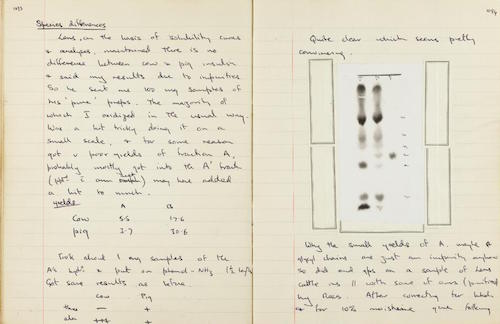 1093
Species differences
Lens, on the basis of solubility curves
& analyses, maintained there is no
difference between cow & pig insulin
& said my results due to impurities
So he sent me 100 mg samples of
his 'pure' preps. The majority of
which I oxidized in the usual way.
Was a bit tricky doing it on a
small scale, & for some reason
got v poor yields of fraction A,
probably mostly got into the A' fract
may have added
a bit to much.
yields A B
Cow 5.5 17.6
pig 3.7 30.6
Took about 1 mg samples of the
A's & put on phenol-NH3
Got same results as before.
Cow Pig
thre — +
ala +++ +
1094
Quite clear which seems pretty
convincing.
Why the small yields of A. maybe
glycyl chains are just an impurity anyhow
so did end gps on a sample of Lens
cattle ins // with some of ours
by Rees. After correcting for
& for 10% moisture gave following